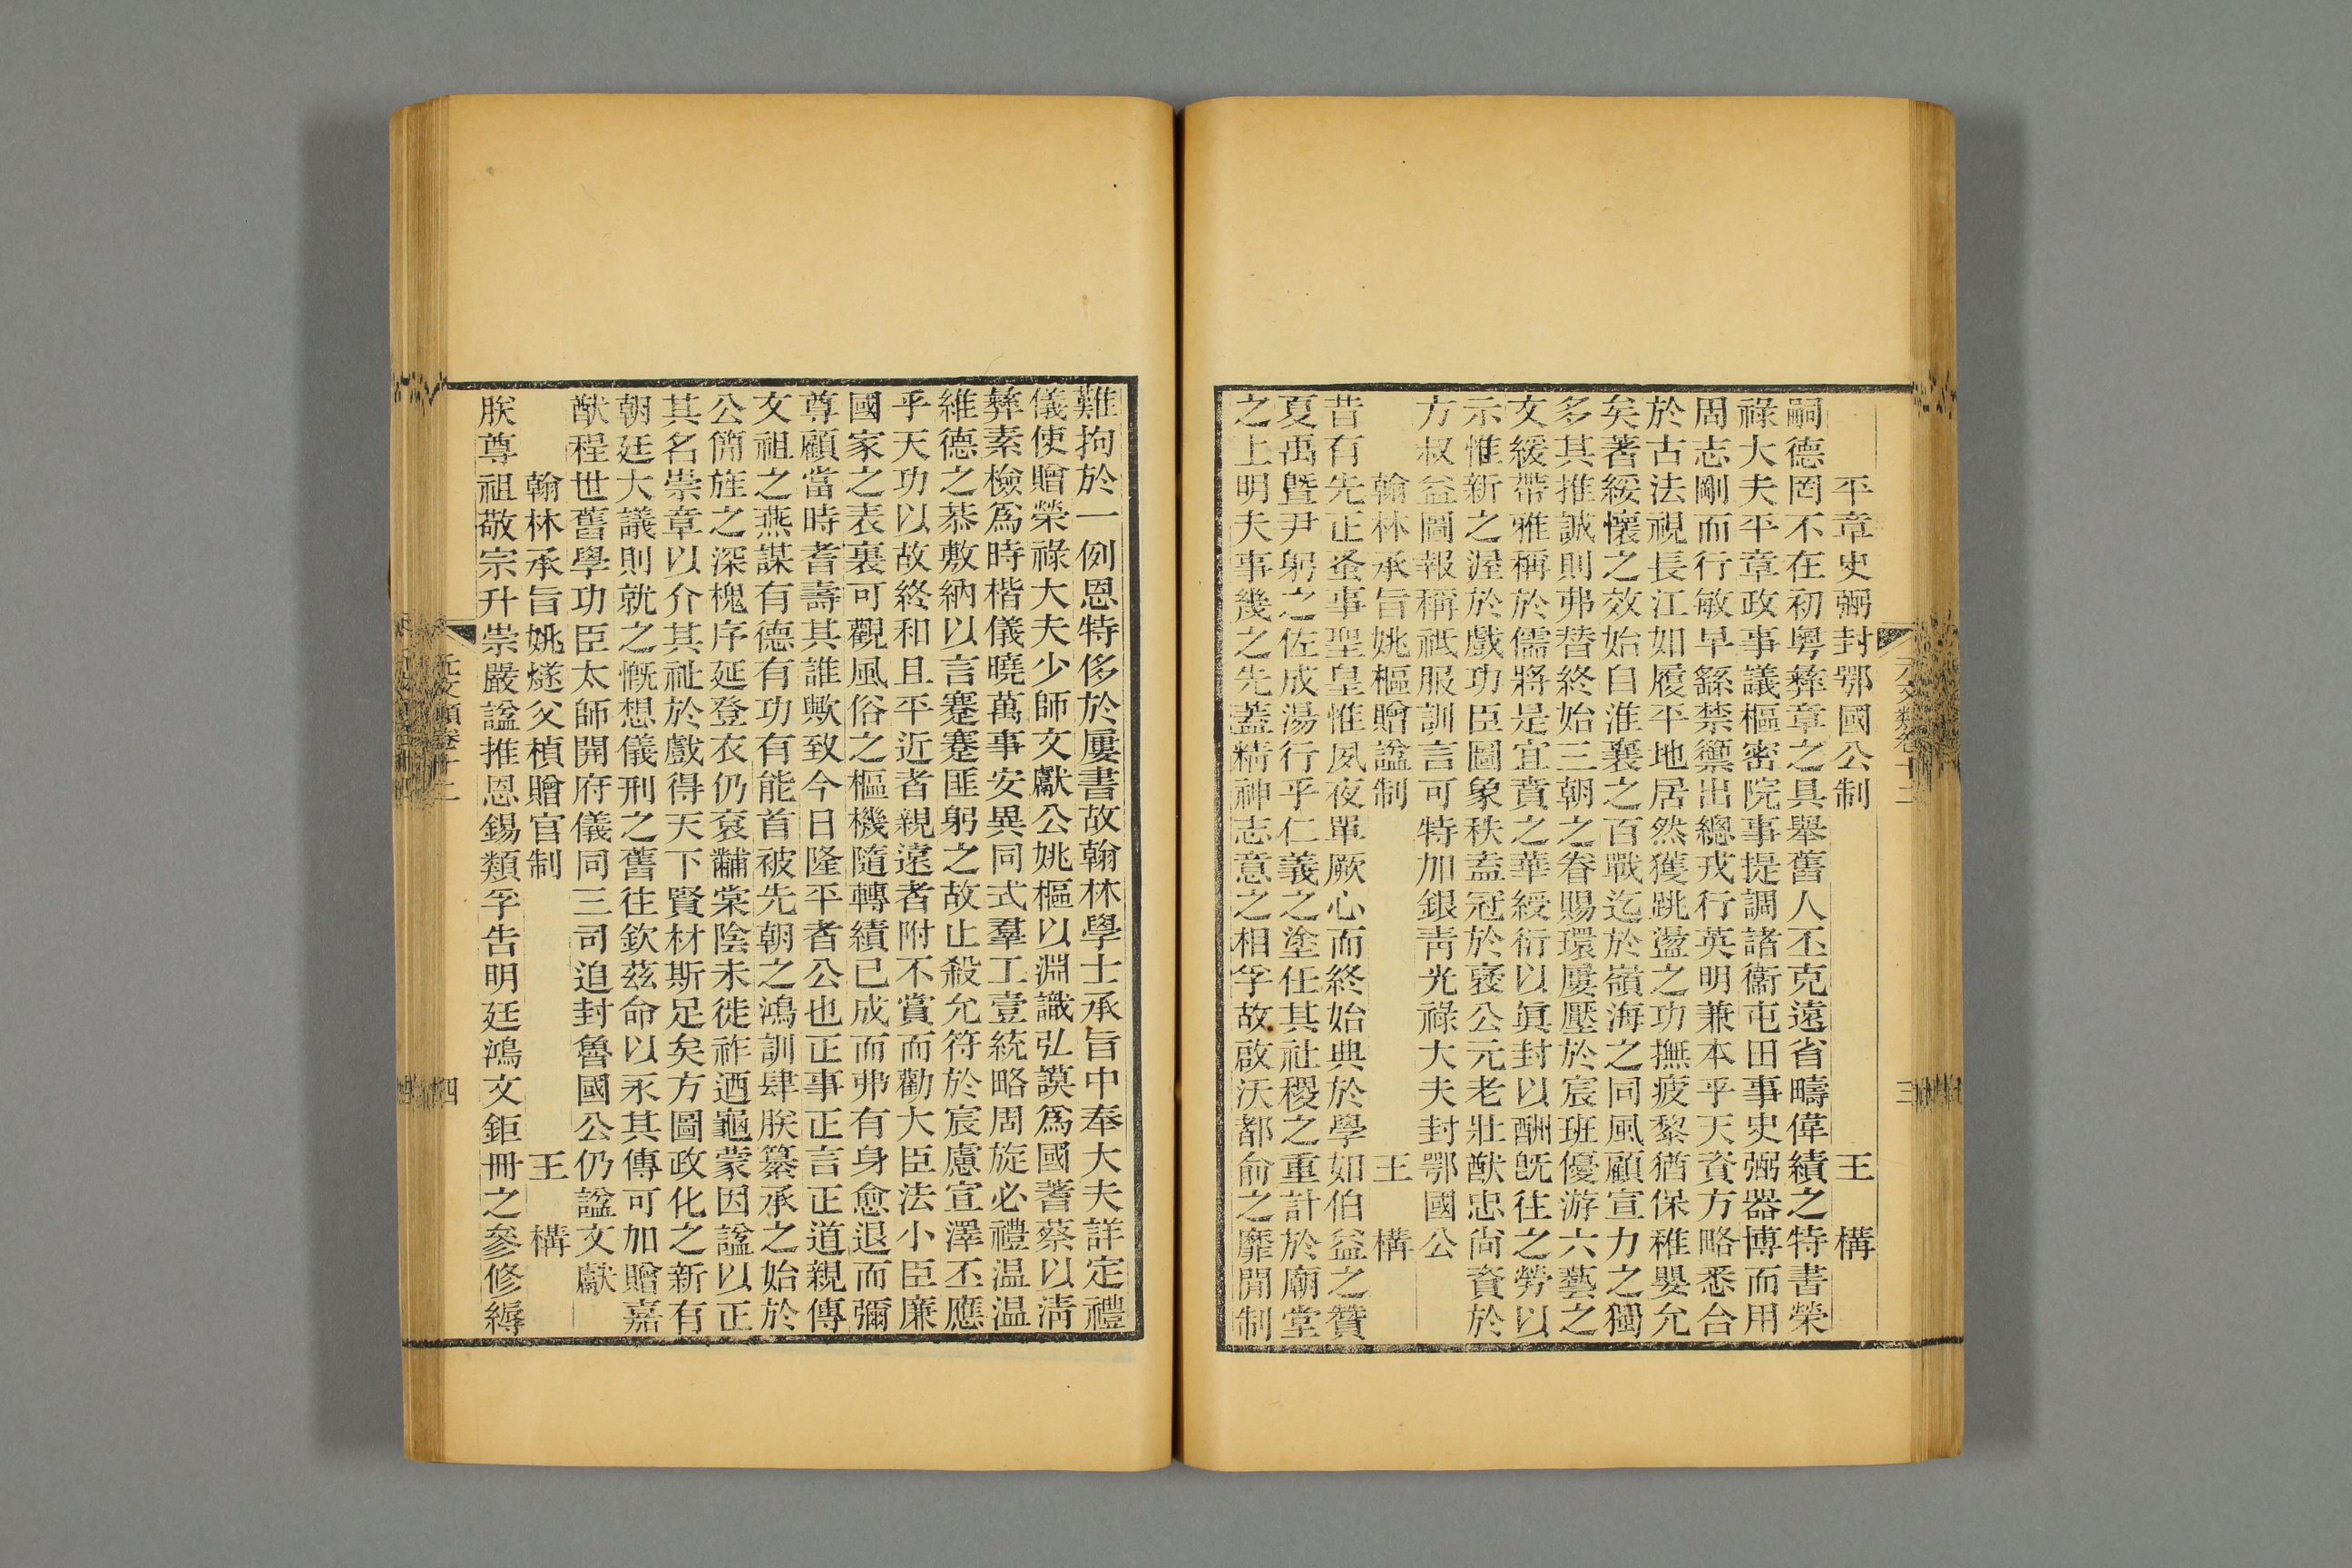 平章史弼封鄂國公制　王　構
嗣德罔不在初粤彝章之具舉舊人丕克遠省疇偉績之特書榮
祿大夫平章政事議樞密院事提調諸衞屯田事史弼器博而用
周志剛而行敏早繇禁籞出總戎行英明兼本乎天資方略悉合
於古法視長江如履平地居然獲跳盪之功撫疲黎猶保稚嬰允
矣著綏懷之效始自淮襄之百戰迄於嶺海之同風顧宣力之獨
多其推誠則弗替終始三朝之眷賜環屢壓於宸班優游六藝之
文緩帶雅稱於儒將是宜賁之華綬衍以眞封以酬旣往之勞以
示惟新之渥於戲功臣圖象秩葢冠於襃公元老壯猷忠尙資於
方叔益圖報稱祗服訓言可特加銀靑光祿大夫封鄂國公
翰林承旨姚樞贈諡制　王　構
昔有先正蚤事聖皇惟夙夜單厥心而終始典於學如伯益之贊
夏禹曁尹躬之佐成湯行乎仁義之塗任其社稷之重計於廟堂
之上明夫事幾之先蓋精神志意之相孚故啟沃都俞之靡閒制
元文類卷十二　三
難拘於一例恩特侈於屢書故翰林學士承旨中奉大夫詳定禮
儀使贈榮祿大夫少師文獻公姚樞以淵識弘謨爲國蓍蔡以淸
彝素檢爲時楷儀曉萬事安異同式羣工壹統略周旋必禮温温
維德之恭敷納以言蹇蹇匪躬之故止殺允符於宸慮宣澤丕應
乎天功以故終和且平近者親遠者附不賞而勸大臣法小臣廉
國家之表裏可觀風俗之樞機隨轉績已成而弗有身愈退而彌
尊顧當時耆壽其誰歟致今日隆平者公也正事正言正道親傳
文祖之燕謀有德有功有能首被先朝之鴻訓肆朕纂承之始於
公簡旌之深槐序延登衣仍袞黼棠陰未徙祚迺龜蒙因諡以正
其名崇章以介其祉於戲得天下賢材斯足矣方圖政化之新有
朝廷大議則就之慨想儀刑之舊往欽茲命以永其傳可加贈嘉
猷程世舊學功臣太師開府儀同三司追封魯國公仍諡文獻
翰林承旨姚燧父楨贈官制　王　構
朕尊祖敬宗升崇嚴諡推恩錫類孚告明廷鴻文鉅冊之參修縟
元文類卷十二　四